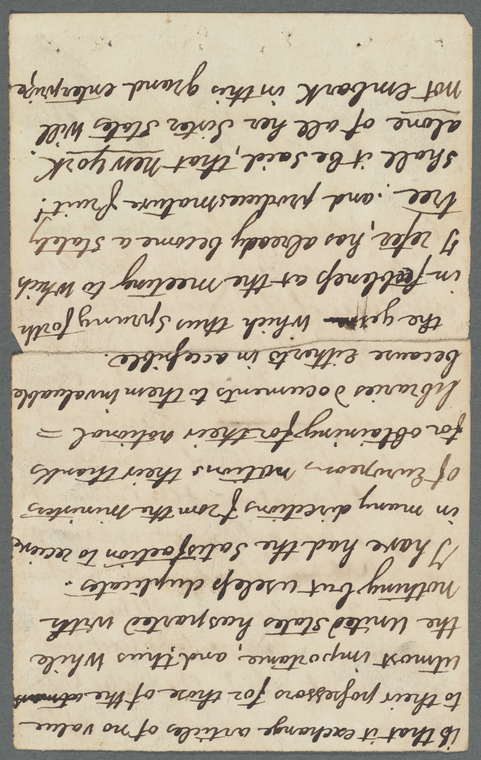 is that it exchange articles of no value
to their possessors for those of the
utmost importance, and, thus while
the United States has parted with
nothing but useless duplicates.
I have had the satisfaction to receive
in many directions from the ministers
of European nations their thanks
for obtaining for their national =
libraries documents to them invaluable
because hitherto in accessible.
the germ which thus sprung forth
in feebleness at the meeting to which
I refer, has already become a stately
tree, and produces mature fruit!
Shall it be said, that New york
alone of all her Sister States will
not embark in this grand enterprize